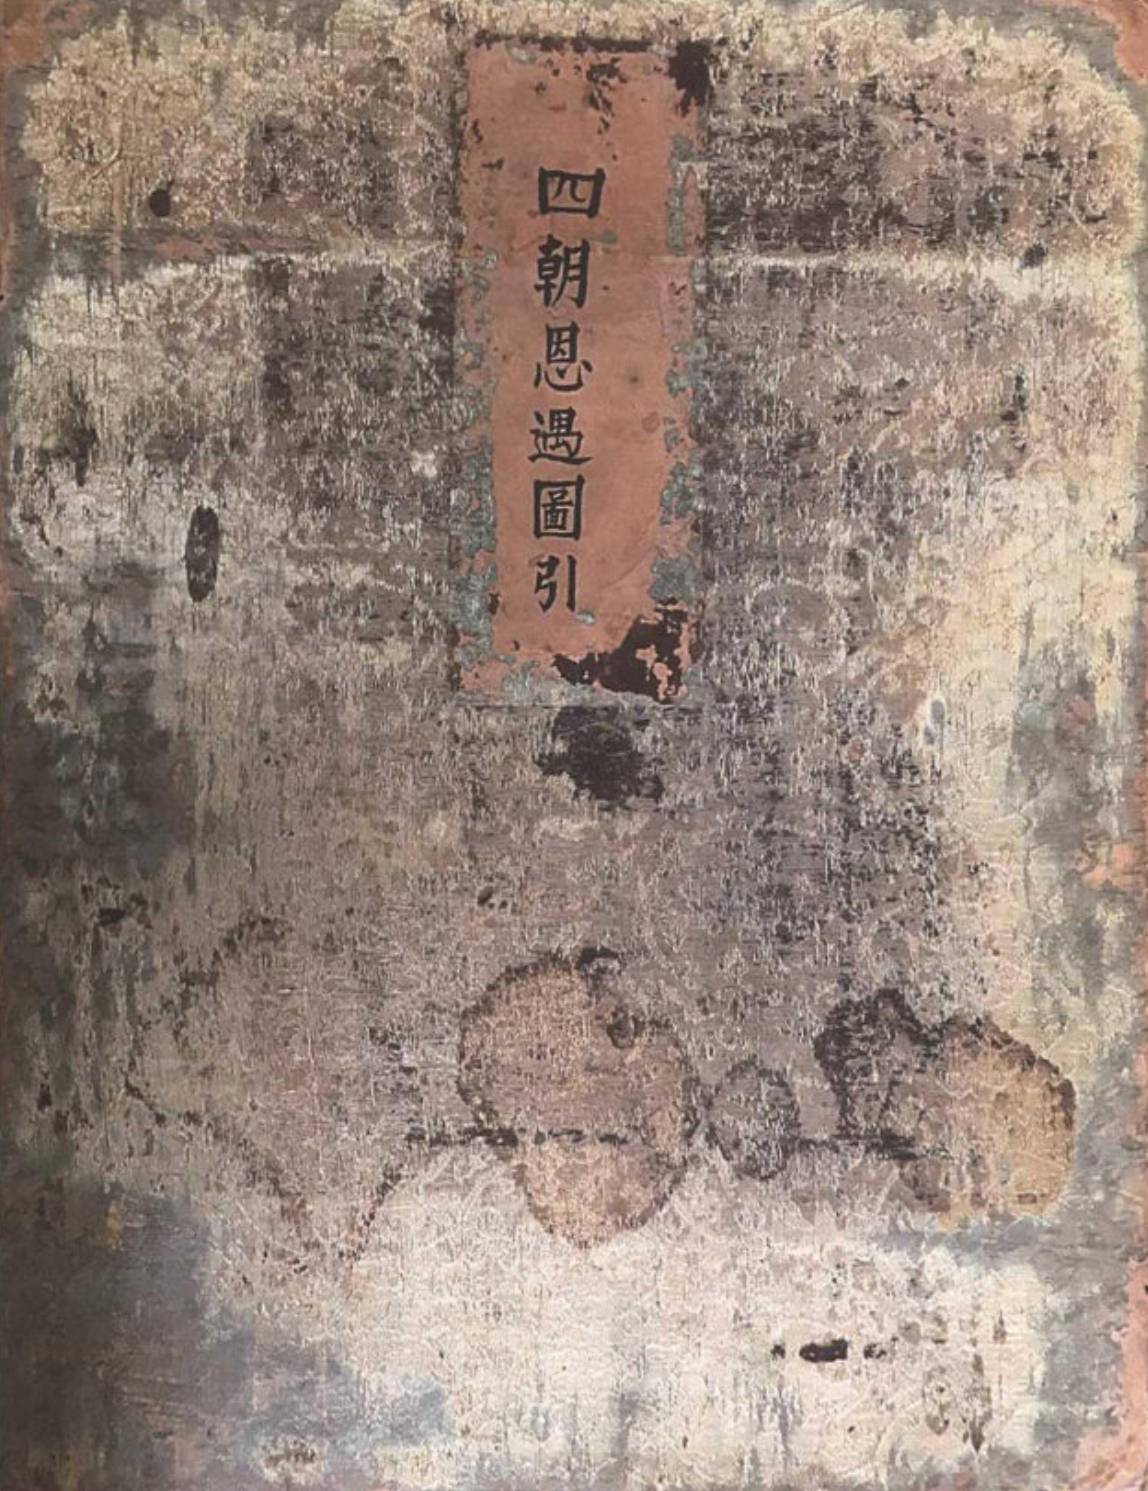 四朝恩遇圖引